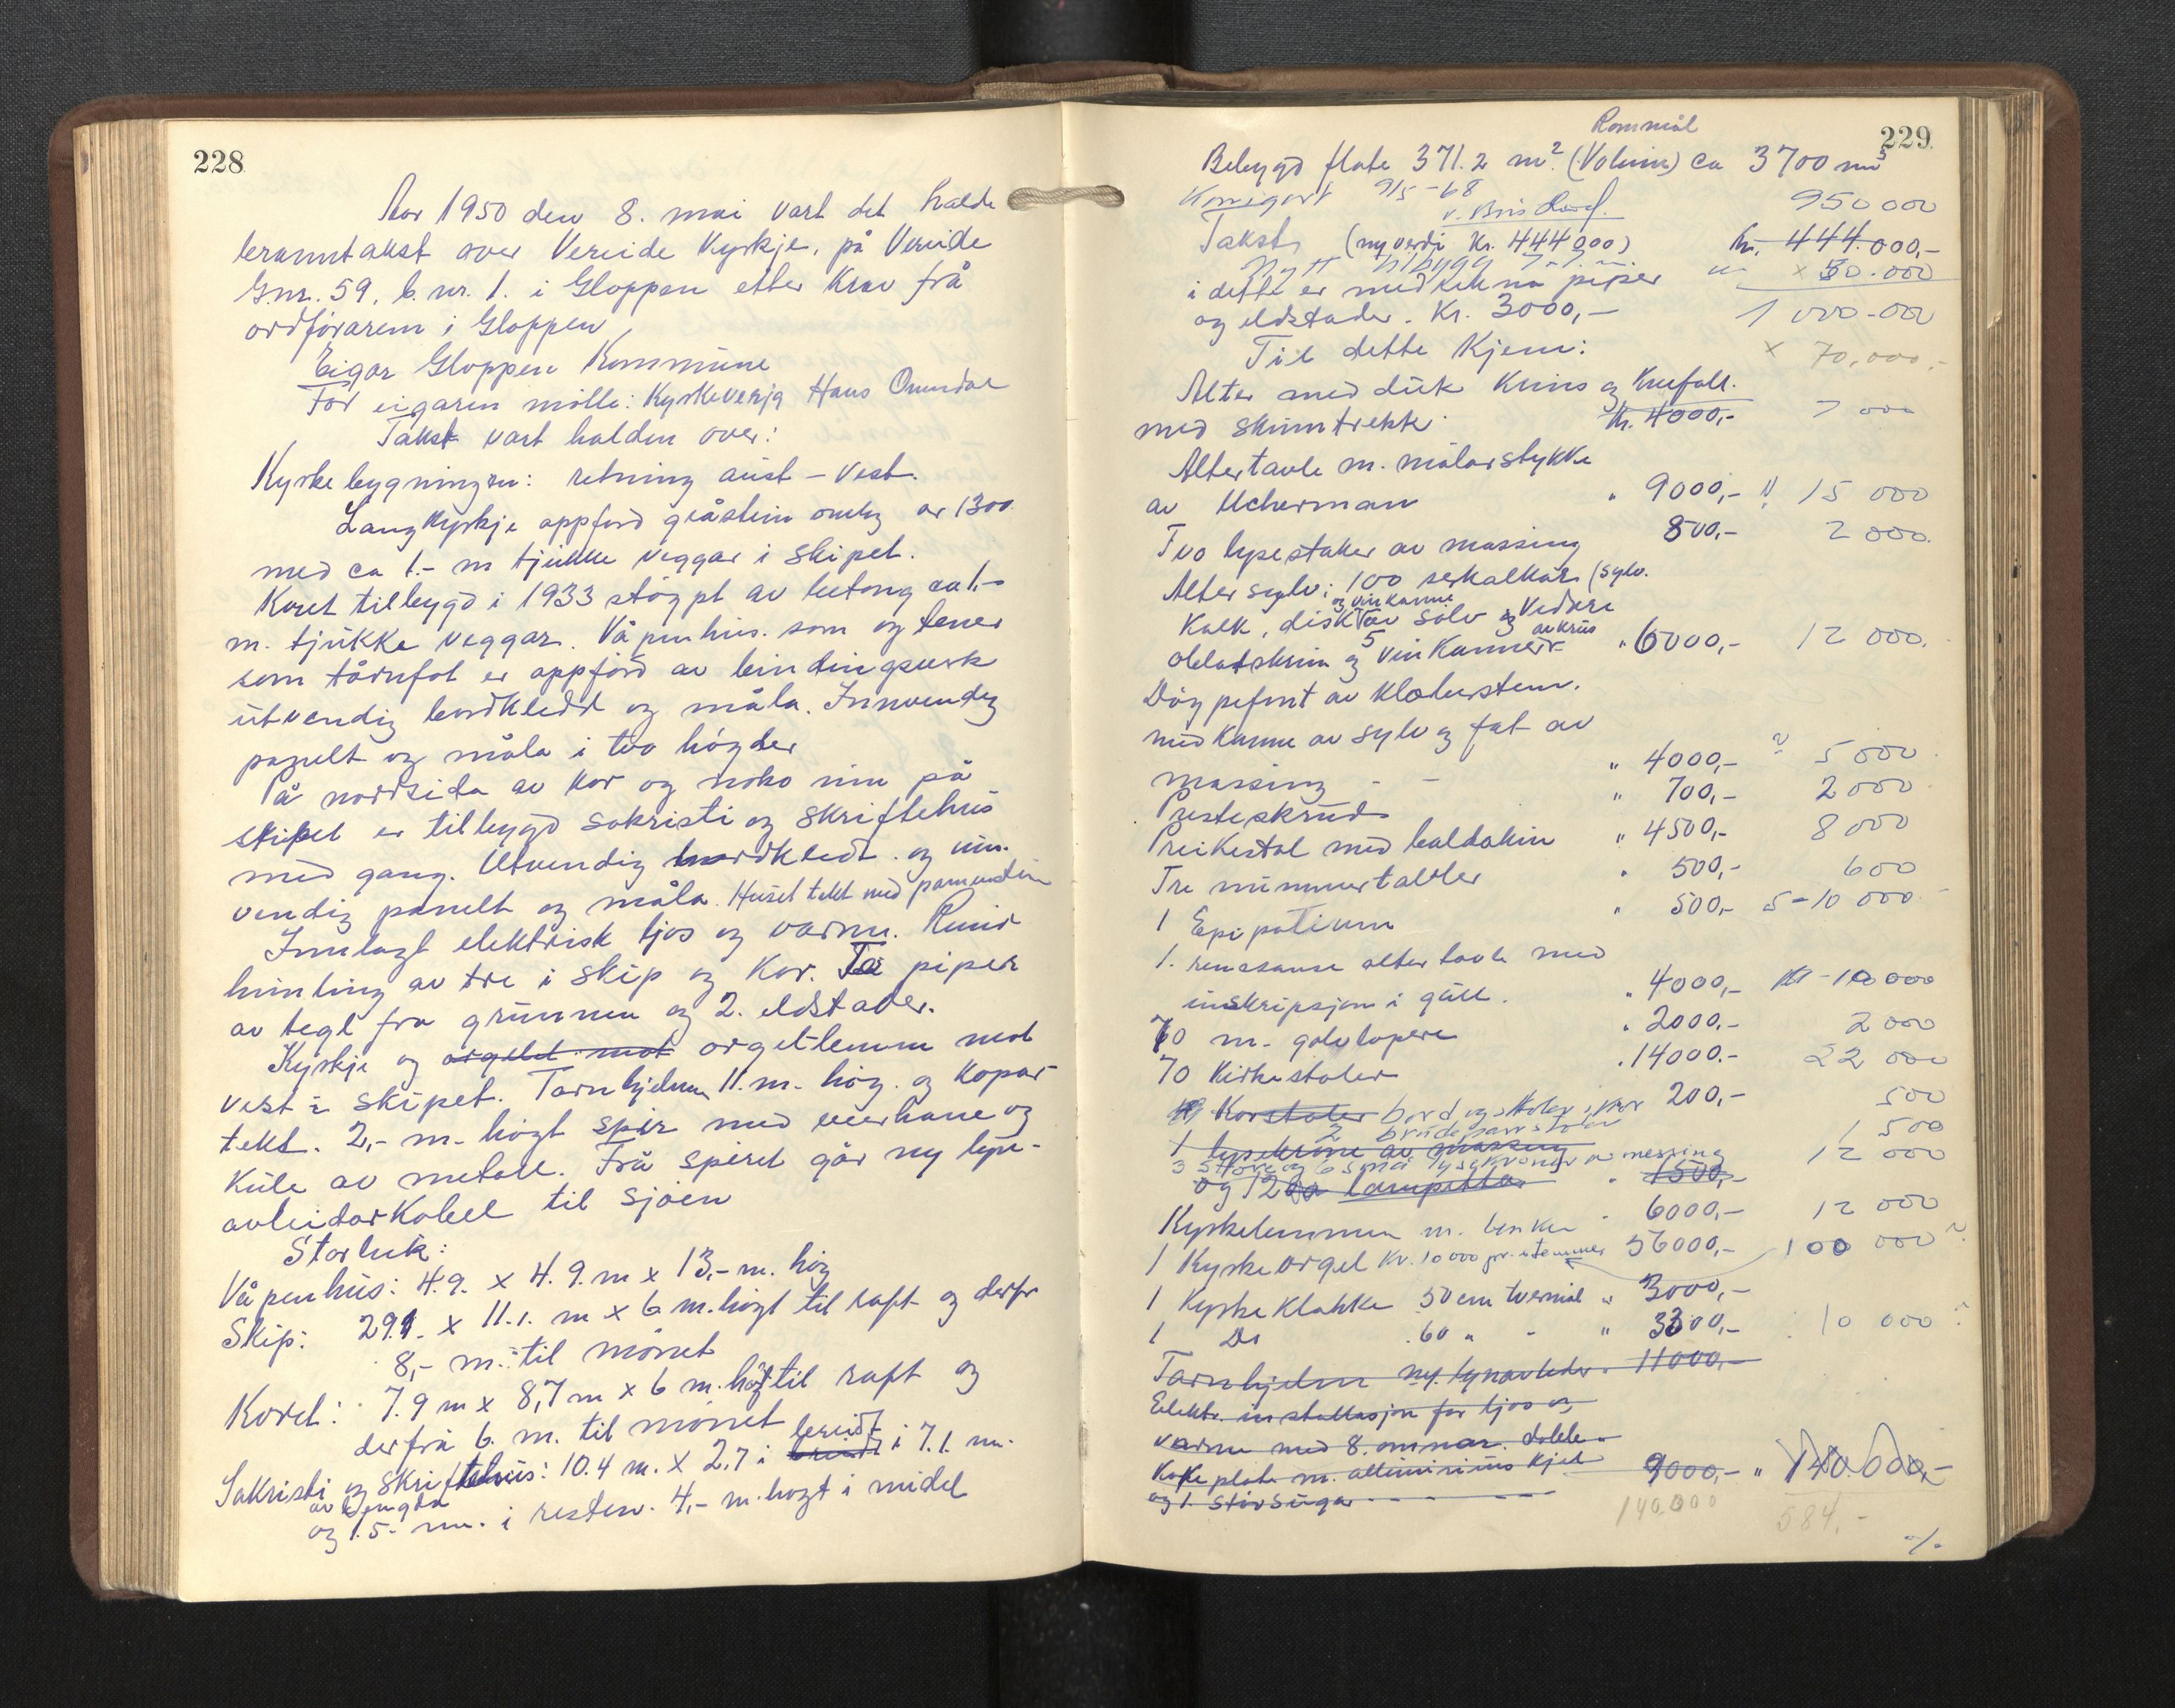 228
År 1950 den 8. mai vart det halde
branntakst over Vereide Kyrkje, på Vereide
G.nr. 59, b. nr. 1. i Gloppen etter Krav frå
ordførarem i Gloppen
Eigar Gloppen Kommune
For eigaren møtte: Kyrkeverja Hans Ommdal
Takst vart halden over:
Kyrkebygningen: retning aust - vest.
Langkyrkje oppførd gråstein omlag år 1300
med ca 1.- m tjukke veggar i skipet.
Koret tilbygd i 1933 støypt av betong ca 1.-
m. tjukke veggar. Våpenhus. som og tener
som tårnfot er oppførd av bindingsverk
utvendig bordkledd og måla. Innvendig
panelt og måla i tvo høgder
På nordsida av kor og noko inn på
skipet er tilbygd sakristi og skriftehus
med gang. Utvendig bordkledt og inn-
vendig panelt og måla. Huset tekt med pannestein
Innlagt elektrisk ljos og varme. Rund
himling av tre i skip og Kor. To piper
av tegl fra grunnen og 2. eldstader.
Kyrkje og orgelet mot orgellemm mot
vest i skipet. Tarnhjelmen 11.m- høg. og Kopar-
tekt. 2,- m- høgt spir med veerhane og
Kule av metall. Frå spiret går ny lyn-
avleidarKabel til sjøen
Storleik:
Våpenhus: 4.9. x 4.9. m x 13,- m. høg
Skip: 29.1. x 11.1. m x 6 m. høgt til raft og derfr
8,- m. til mønet
Koret: 7.9 m x 8,7 m x 6 m. høgt til raft og
derfrå 6. m. til mønet
Sakristi og skriftehus: 10.4 m. x 2.7 i breidt i 7.1. m.
av lengda
og 1.5- m. i resten. 4,- m. høgt i midel
229
Rommål
Bebygd flate 371.2 m² (Volum) ca 3700 m³
9/5-68
950 000
Takst (ny verdi Kr. 444000) Kr. 444.000,-
Nytt tilbygg x 50.000
i dette er medrekna piper
og eldstader. Kr. 3000,- 1 000.000
Til dette Kjem: x 70,000.-
Alter med duk Krins og Knefall.
med skinntrekk. Kr. 4000,- 7 000
Altertavle m. målarstykke
av Ucherman " 9000,- 15 000
Tvo lysestaker av messing 800,- 2 000.
Alter sylv: 100 serkalkar (sylv.
og vinkanne
Kalk, disk av sølv og Vedkre
oblatskrin og 5 vinkanner av krus " 6000,- 12 000.
Døypefont av Kleberstein.
med Kanne av sylv og fat av
massing - - " 4000,- ? 5 000
Presteskrud " 700,- 2 000
Preikestol med baldakin " 4500,- 8 000
Tre nummertavler " 500,- 600
1 Epipatium " 500,- 5-10 000
1. renesanse altertavle med
inskripsjon i gull. " 4000,- 10 000
70 m- golvlopere " 2000.- 2 000
70 Kirkestoler " 14000.- 22 000
Korstoler bord og stoler i kor 200,- 500
2 brudeparstoler 1 500
1 lysekrone av messing
3 store og 6 små lysekroner av messing 12 000
og 12 lampetter " 1500,-
Kyrkelemmen m. benker " 6000,- 12 000
1 Kyrkeorgel Kr. 10 000 pr. stemmer 56000,- 100 000 ?
1 Kyrkeklokke 50 cm tvermål " 3000,-
1 Do .60 " - " 3300,- 10 000 ?
Tarnhjelm ny. lynavleder. 11000,-
Elektr. installasjon for ljos og
varme med 8. omnar. doble-
Kokeplate m. alluminiums kjel
og 1. støvsugar - - - - 9000,- " 140.000,-
140.000 584.-
./.